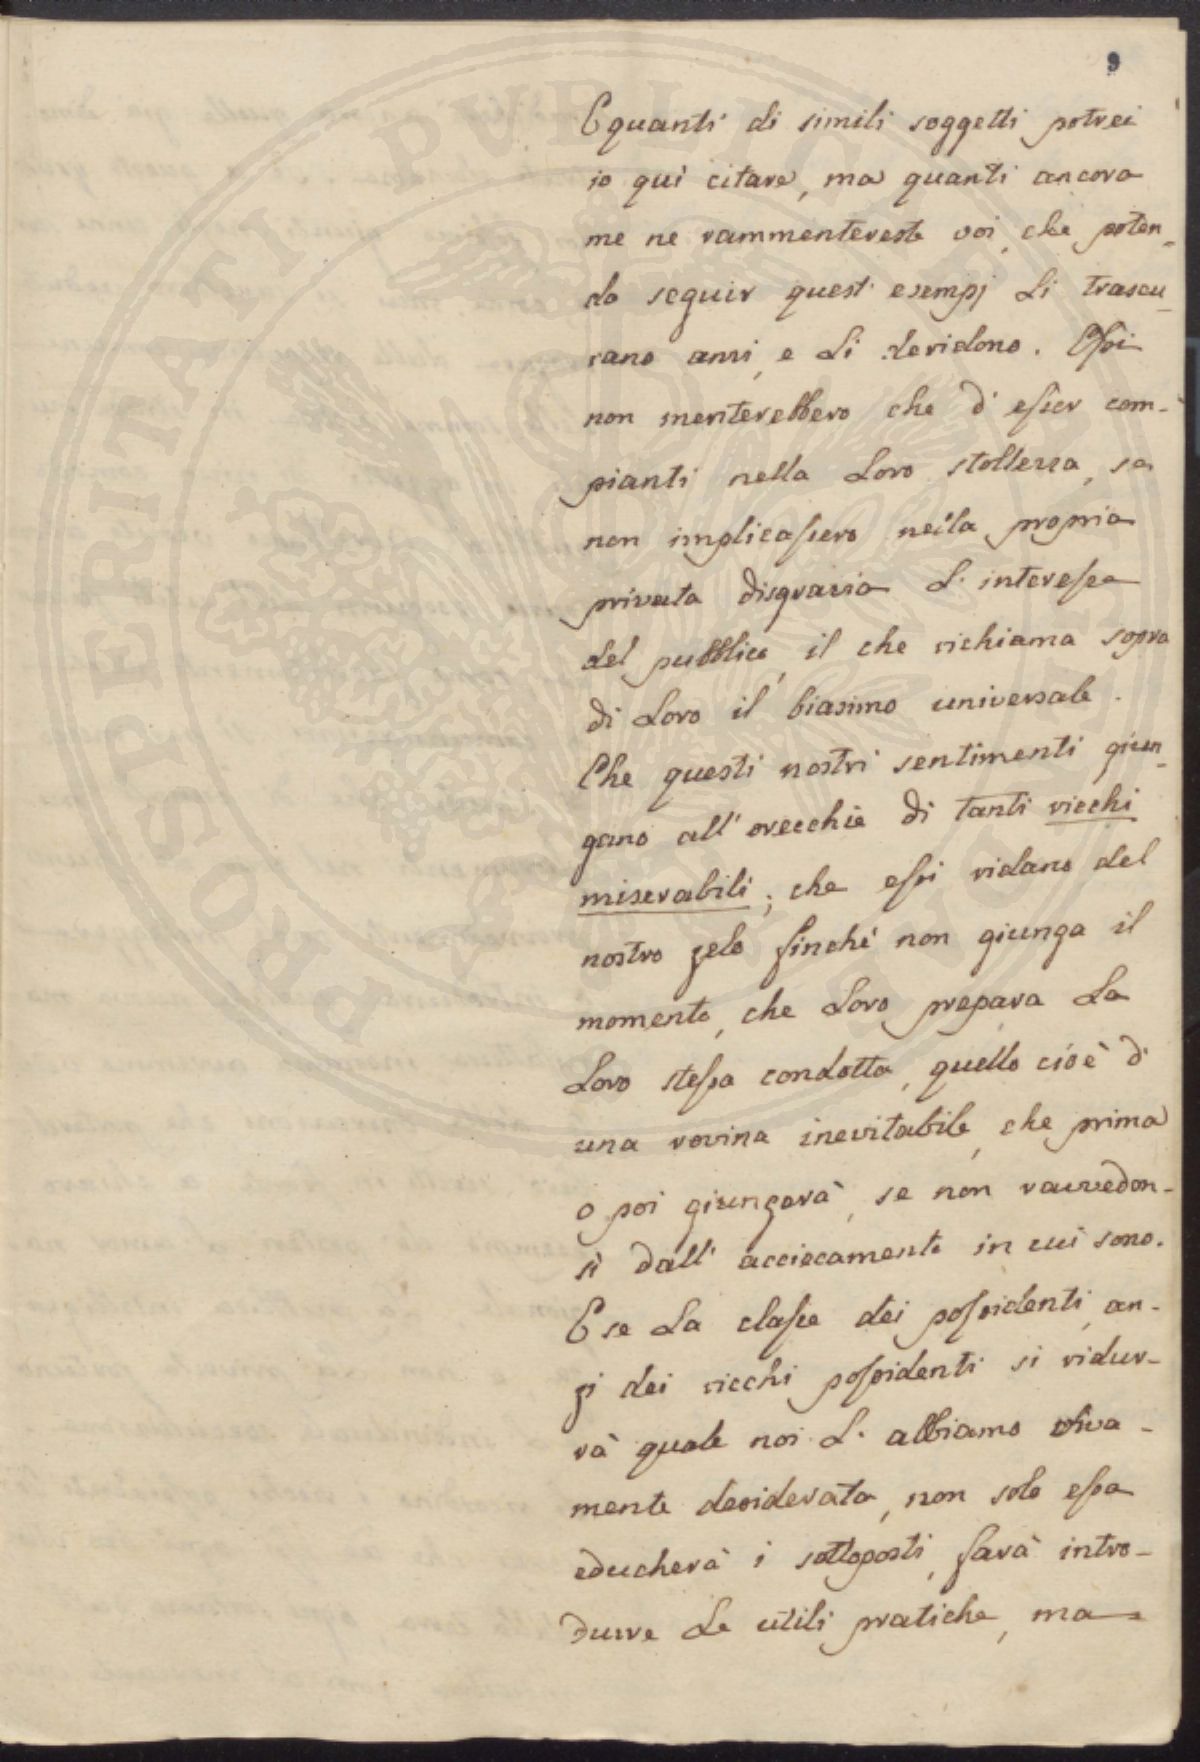 9
E quanti di simili soggetti potrei
io quì citare, ma quanti ancora
me ne rammentereste voi, che poten_
do seguir quest' esempj li trascu_
rano anzi, e li deridono. Essi
non meriterebbero che d' esser com-
pianti nella loro stollezza, se
non implicassero nella propria
privata disgrazia l' interesse
del pubblico, il che richiama sopra
di loro il biasimo universale.
Che questi nostri sentimenti giun_
gano all' orecchie di tanti ricchi
miserabili; che essi ridano del
nostro zelo finchè non giunga il
momento, che loro prepara la
loro stessa condotta, quello cioè d'
una rovina inevitabile, che prima
o poi giungerà, se non ravvedon-
si dall' acciecamento in cui sono.
E se la classe dei possidenti, an-
zi dei ricchi possidenti si ridur-
rà quale noi l' abbiamo viva-
mente desiderata, non solo essa
educherà i sottoposti, farà intro-
durre le utili pratiche, ma
PROSPERITATI PVBLICAE